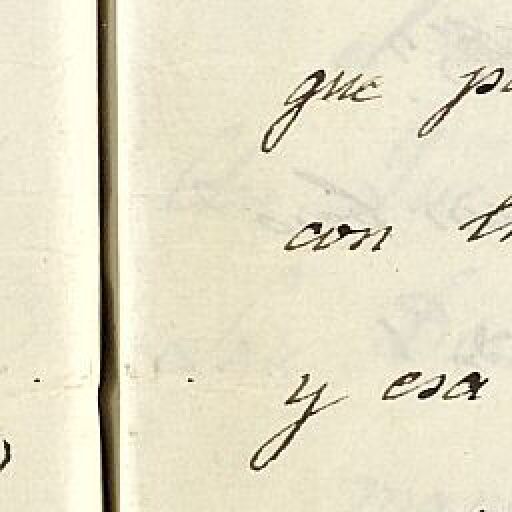 que
con
y esa